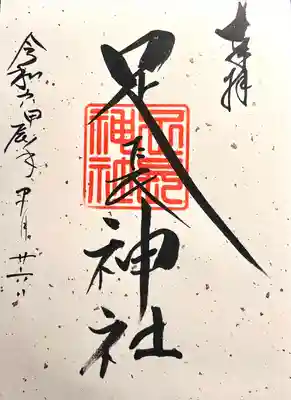 奉拝
足長神社
足長神社
令和六甲辰年 月廿六日